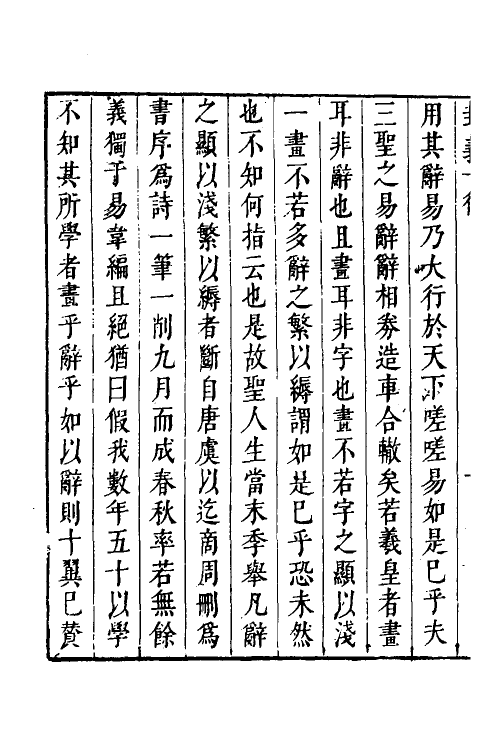 用其辭易乃大行於天下嗟嗟易如是已乎夫
三聖之易辭辭相劵造車合轍矣若羲皇者畫
耳非辭也且畫耳非字也畫不若字之顯以淺
一畫不若多辭之繁以縟謂如是已乎恐未然
也不知何指云也是故聖人生當末季舉凡辭
之顯以淺繁以縟者斷自唐虞以迄商周刪爲
書序爲詩一筆一削九月而成春秋率若無餘
義獨于易韋編且絕猶曰假我數年五十以學
不知其所學者畫乎辭乎如以辭則十翼已贊